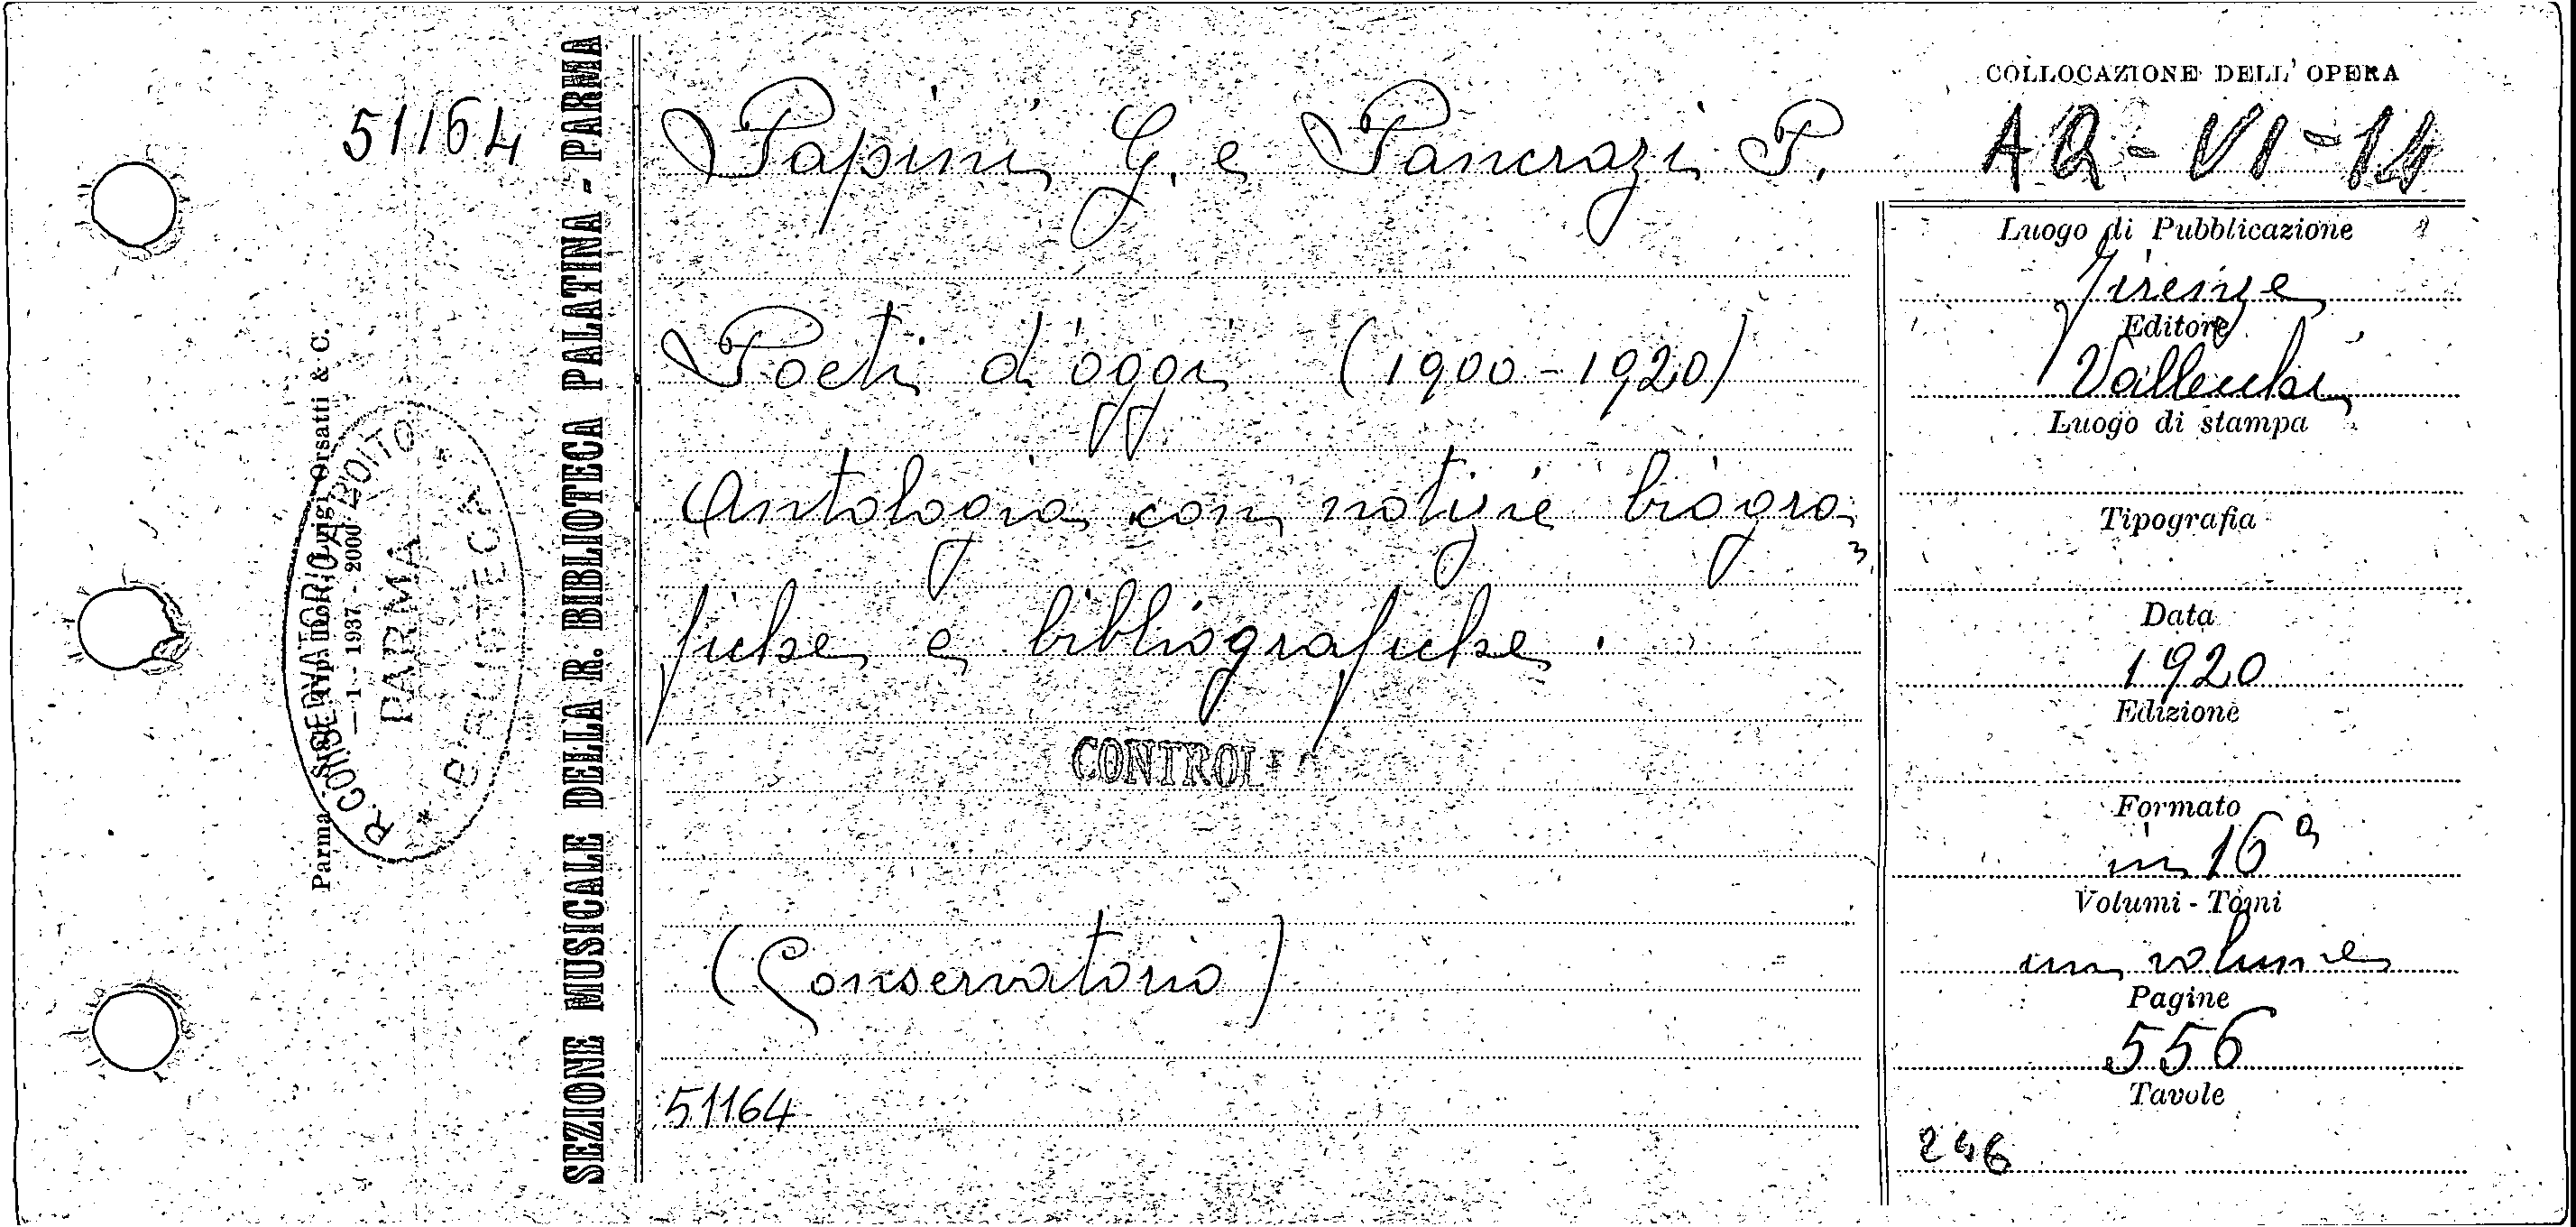 51164
SEZIONE MUSICALE DELLA R. BIBLIOTECA PALATINA - PARMA
Parma Luigi Orsatti & C.
1 - 1937 - 2000
R. CONSERVATORIO BOITO
PARMA
BIBLIOTECA
Papini G. e Pancrazi P.
Poeti d'oggi (1900-1920)
Antologia con notizie biogra
fiche e bibliografiche.
CONTROL
(Conservatorio)
51164
COLLOCAZIONE DELL' OPERA
AQ-VI-14
Luogo di Pubblicazione
Firenze
Editore
Vallecchi
Luogo di stampa
Tipografia
Data
1920
Edizione
Formato
in 16°
Volumi - Tomi
un volume
Pagine
556
Tavole
246